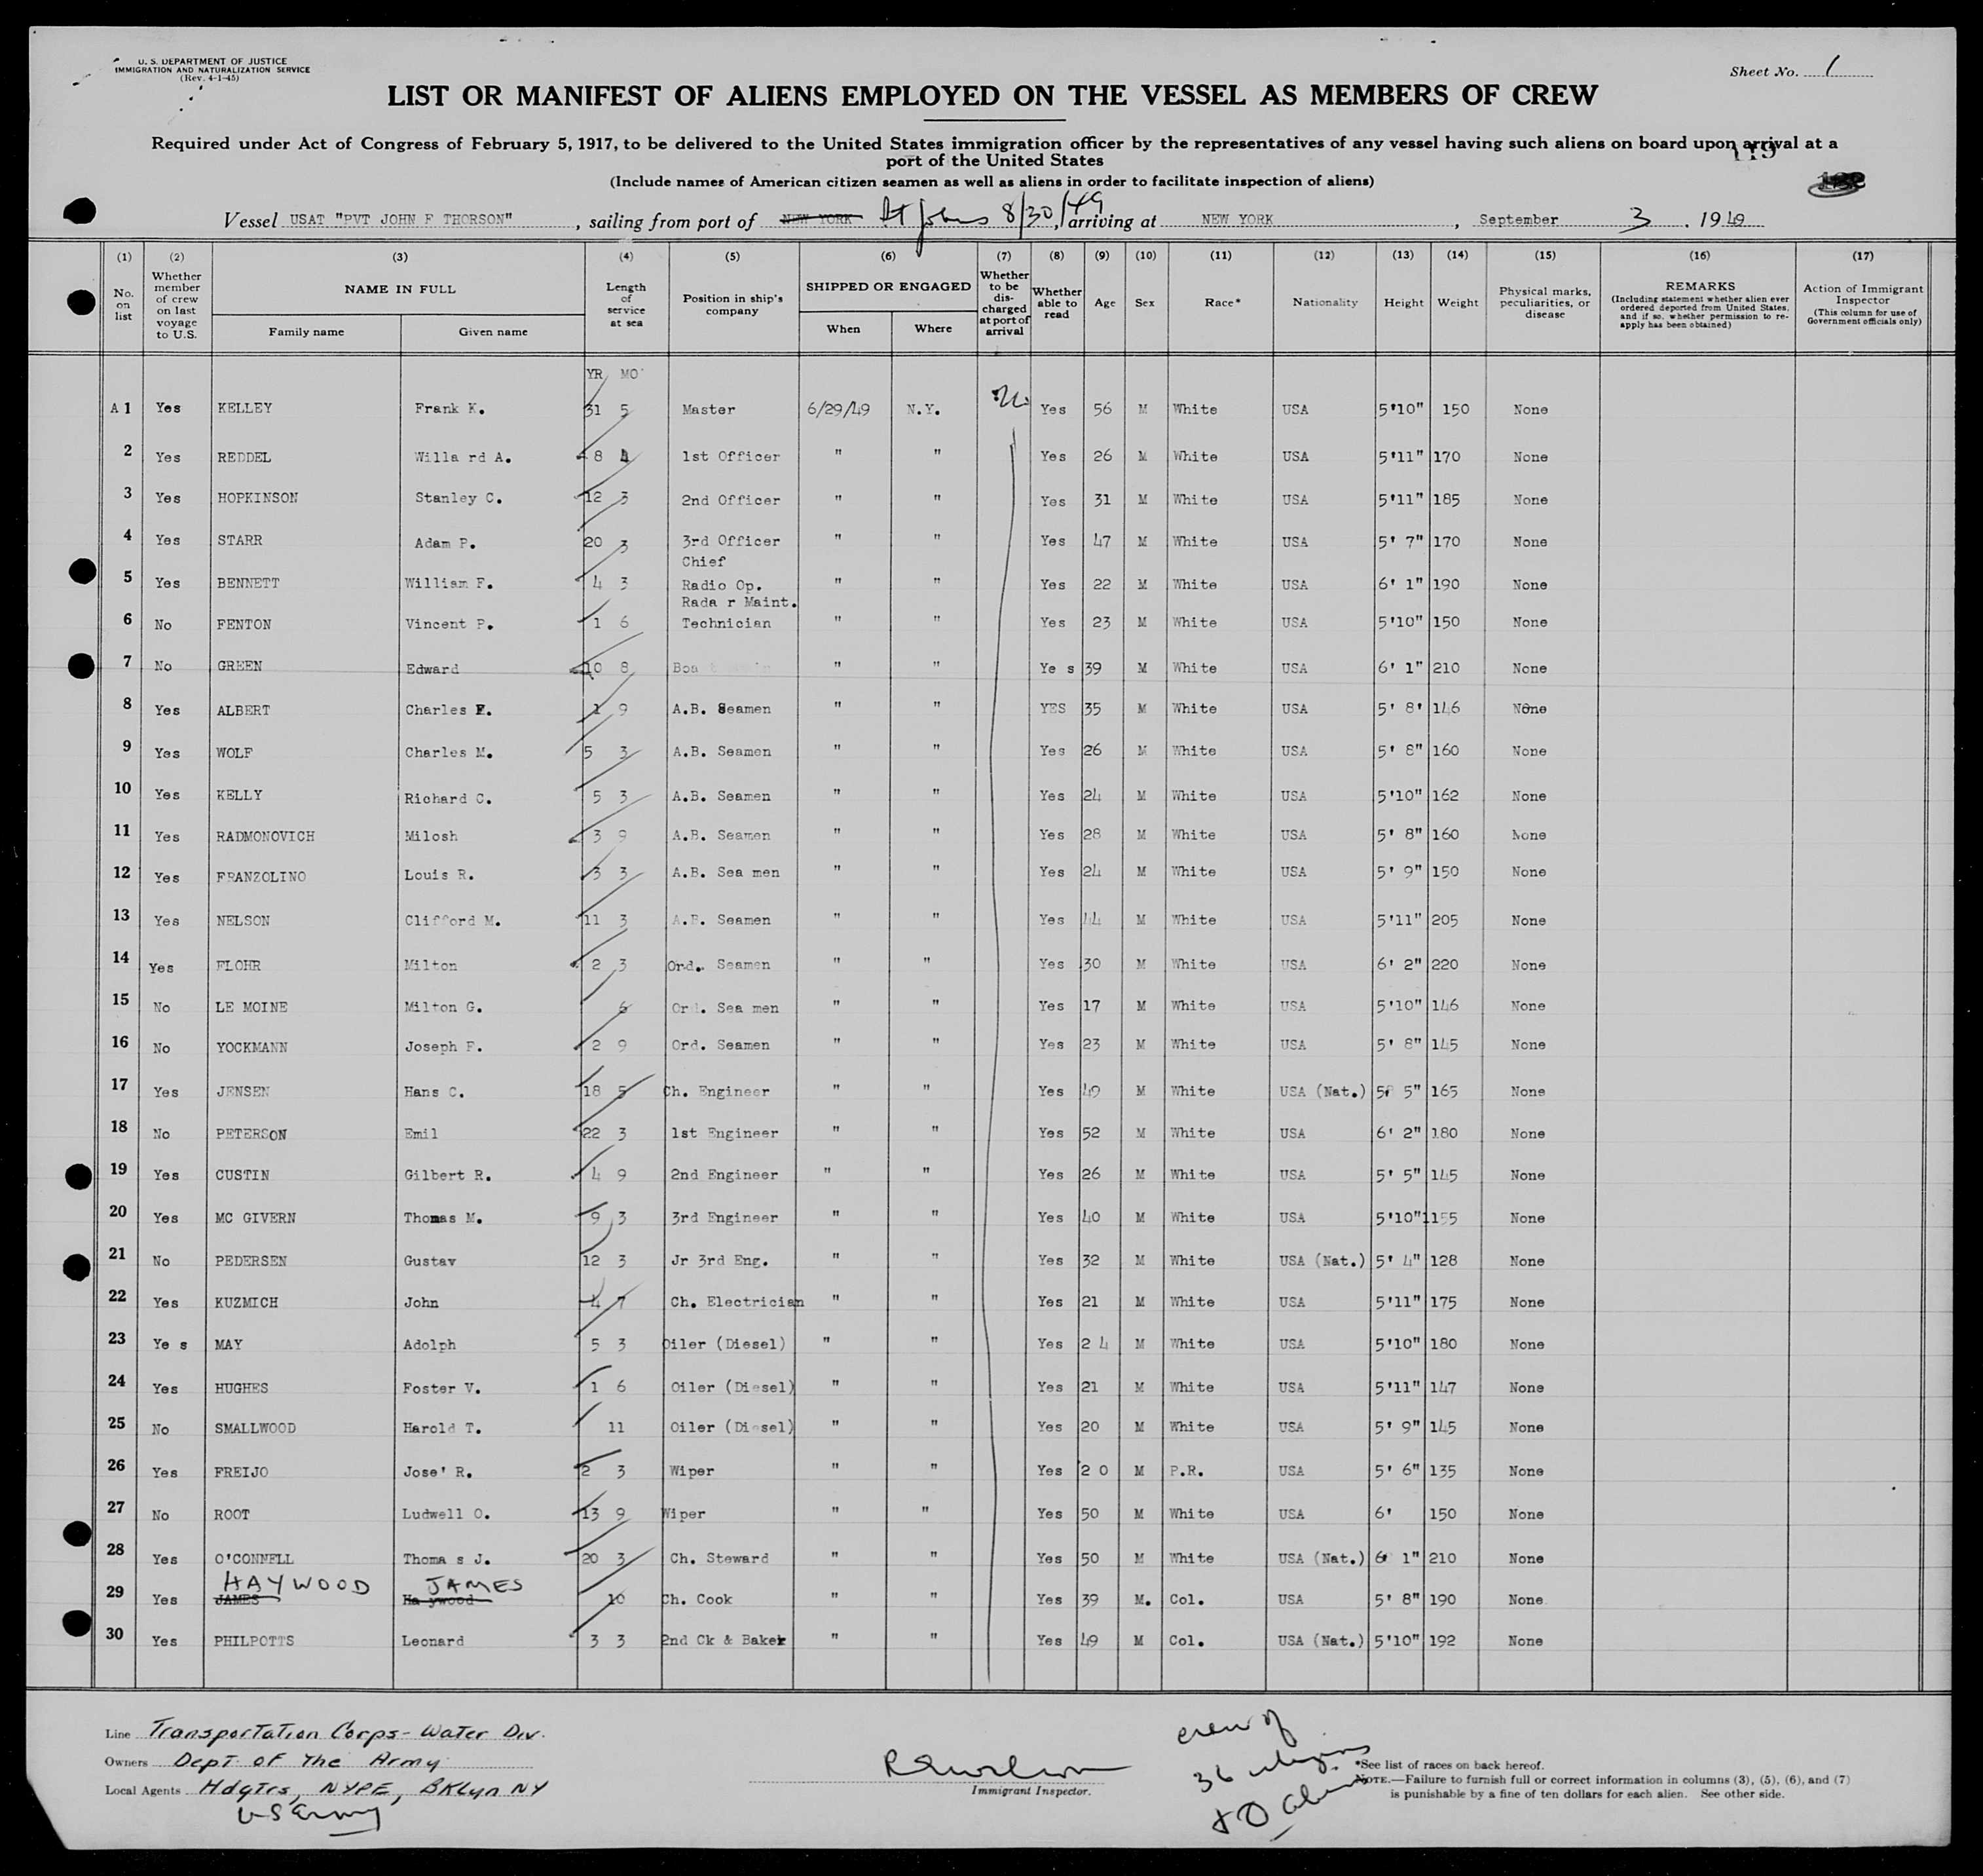 U. S. DEPARTMENT OF JUSTICE
IMMIGRATION AND NATURALIZATION SERVICE
(Rev. 4-1-45)
Sheet No. 1
LIST OR MANIFEST OF ALIENS EMPLOYED ON THE VESSEL AS MEMBERS OF CREW
Required under Act of Congress of February 5, 1917, to be delivered to the United States immigration officer by the representatives of any vessel having such aliens on board upon arrival at a
port of the United States
119
(Include names of American citizen seamen as well as aliens in order to facilitate inspection of aliens)
Vessel USAT "PVT JOHN F THORSON", sailing from port of NEW YORK St Johns 8/30/49, arriving at NEW YORK, September 3, 1949
(1) (2) (3) (4) (5) (6) (7) (8) (9) (10) (11) (12) (13) (14) (15) (16) (17)
No. on list
Whether member of crew on last voyage to U.S.
NAME IN FULL
Family name Given name
Length of service at sea
Position in ship's company
SHIPPED OR ENGAGED
When Where
Whether to be discharged at port of arrival
Whether able to read
Age Sex Race* Nationality Height Weight
Physical marks, peculiarities, or disease
REMARKS
(Including statement whether alien ever ordered deported from United States, and if so, whether permission to reapply has been obtained)
Action of Immigrant Inspector
(This column for use of Government officials only)
YR MO
A 1 Yes KELLEY Frank K. 31 5 Master 6/29/49 N.Y. Yes 56 M White USA 5'10" 150 None
2 Yes REDDEL Willa rd A. 8 4 1st Officer " " Yes 26 M White USA 5'11" 170 None
3 Yes HOPKINSON Stanley C. 12 3 2nd Officer " " Yes 31 M White USA 5'11" 185 None
4 Yes STARR Adam P. 20 3 3rd Officer " " Yes 47 M White USA 5' 7" 170 None
5 Yes BENNETT William F. 4 3 Chief Radio Op. " " Yes 22 M White USA 6' 1" 190 None
6 No FENTON Vincent P. 1 6 Rada r Maint. Technician " " Yes 23 M White USA 5'10" 150 None
7 No GREEN Edward 10 8 " " Ye s 39 M White USA 6' 1" 210 None
8 Yes ALBERT Charles F. 1 9 A.B. Seamen " " YES 35 M White USA 5' 8' 146 None
9 Yes WOLF Charles M. 5 3 A.B. Seamen " " Yes 26 M White USA 5' 8" 160 None
10 Yes KELLY Richard C. 5 3 A.B. Seamen " " Yes 24 M White USA 5'10" 162 None
11 Yes RADMONOVICH Milosh 3 9 A.B. Seamen " " Yes 28 M White USA 5' 8" 160 None
12 Yes FRANZOLINO Louis R. 3 3 A.B. Sea men " " Yes 24 M White USA 5' 9" 150 None
13 Yes NELSON Clifford M. 11 3 A.B. Seamen " " Yes 44 M White USA 5'11" 205 None
14 Yes FLOHR Milton 2 3 Ord. Seamen " " Yes 30 M White USA 6' 2" 220 None
15 No LE MOINE Milton G. 6 Ord. Sea men " " Yes 17 M White USA 5'10" 146 None
16 No YOCKMANN Joseph F. 2 9 Ord. Seamen " " Yes 23 M White USA 5' 8" 145 None
17 Yes JENSEN Hans C. 18 5 Ch. Engineer " " Yes 49 M White USA (Nat.) 5' 5" 165 None
18 No PETERSON Emil 22 3 1st Engineer " " Yes 52 M White USA 6' 2" 180 None
19 Yes CUSTIN Gilbert R. 4 9 2nd Engineer " " Yes 26 M White USA 5' 5" 145 None
20 Yes MC GIVERN Thomas M. 9 3 3rd Engineer " " Yes 40 M White USA 5'10" 155 None
21 No PEDERSEN Gustav 12 3 Jr 3rd Eng. " " Yes 32 M White USA (Nat.) 5' 4" 128 None
22 Yes KUZMICH John 4 7 Ch. Electrician " " Yes 21 M White USA 5'11" 175 None
23 Ye s MAY Adolph 5 3 Oiler (Diesel) " " Yes 2 4 M White USA 5'10" 180 None
24 Yes HUGHES Foster V. 1 6 Oiler (Diesel) " " Yes 21 M White USA 5'11" 147 None
25 No SMALLWOOD Harold T. 11 Oiler (Diesel) " " Yes 20 M White USA 5' 9" 145 None
26 Yes FREIJO Jose' R. 2 3 Wiper " " Yes 2 0 M P.R. USA 5' 6" 135 None
27 No ROOT Ludwell O. 13 9 Wiper " " Yes 50 M White USA 6' 150 None
28 Yes O'CONNELL Thoma s J. 20 3 Ch. Steward " " Yes 50 M White USA (Nat.) 6' 1" 210 None
HAYWOOD JAMES
29 Yes JAMES Ha ywood 10 Ch. Cook " " Yes 39 M. Col. USA 5' 8" 190 None
30 Yes PHILPOTTS Leonard 3 3 2nd Ck & Baker " " Yes 49 M Col. USA (Nat.) 5'10" 192 None
Line Transportation Corps - Water Div.
Owners Dept of the Army
Local Agents Hdqtrs, NYPE, BKlyn NY
US Army
Immigrant Inspector.
crew of
36
+ 0 aliens
*See list of races on back hereof.
NOTE.—Failure to furnish full or correct information in columns (3), (5), (6), and (7)
is punishable by a fine of ten dollars for each alien. See other side.